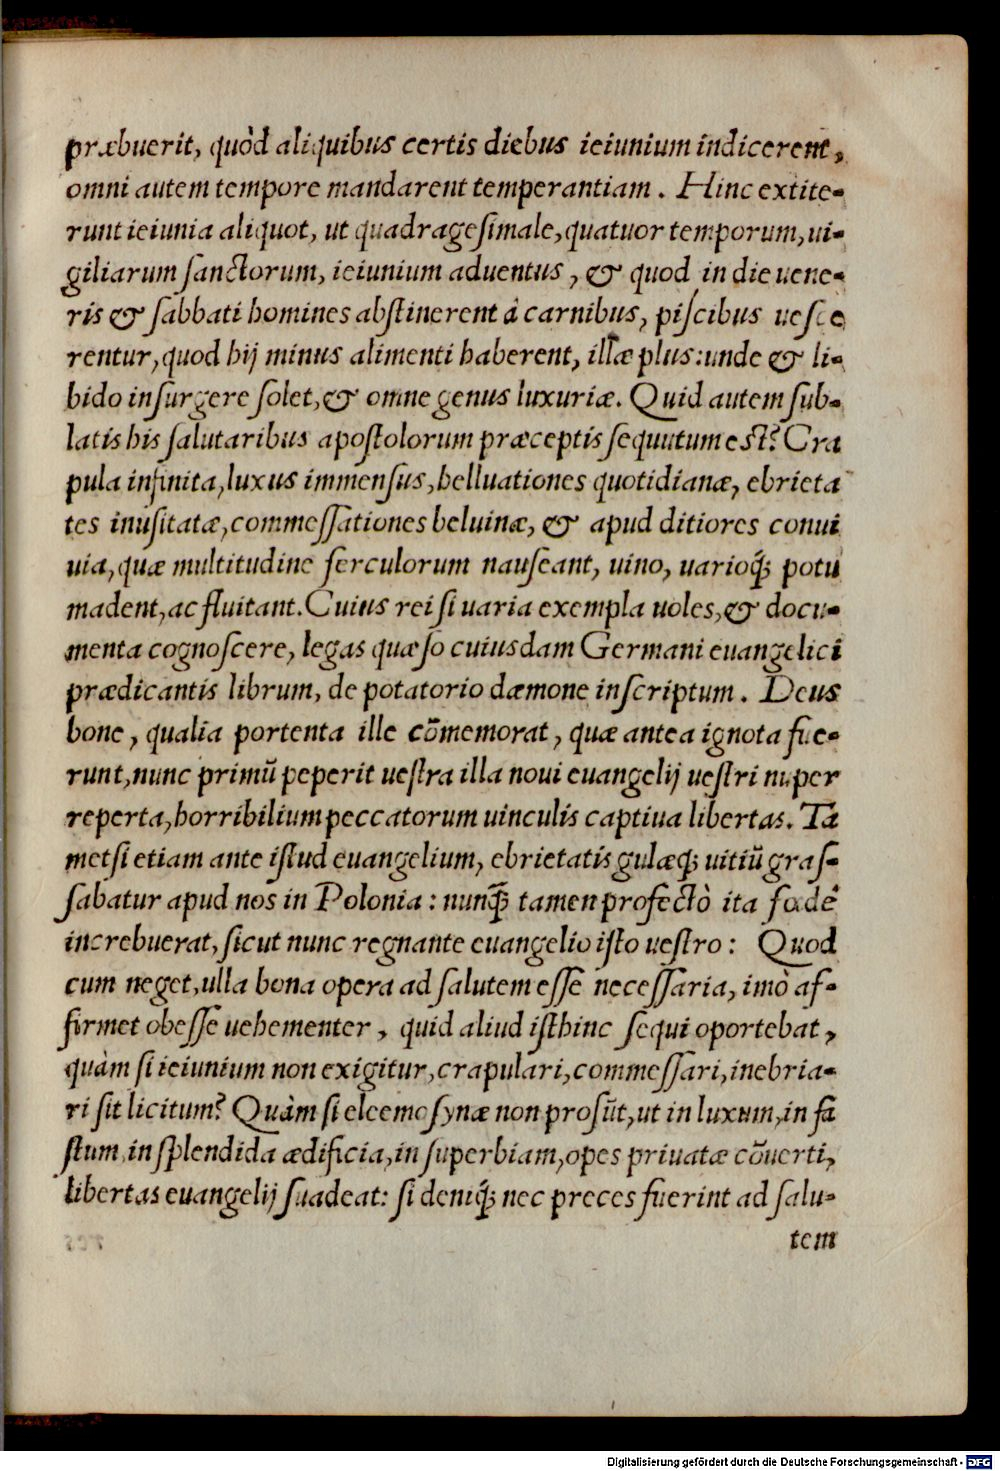 præbuerit, quòd aliquibus certis diebus ieiunium indicerent,
omni autem tempore mandarent temperantiam. Hinc extite-
runt ieiunia aliquot, ut quadragesimale, quatuor temporum, ui-
giliarum sanctorum, ieiunium aduentus, & quod in die uene-
ris & sabbati homines abstinerent à carnibus, piscibus uesce
rentur, quod hij minus alimenti haberent, illæ plus: unde & li-
bido insurgere solet, & omne genus luxuriæ. Quid autem sub-
latis his salutaribus apostolorum præceptis sequutum est? Cra
pula infinita, luxus immensus, helluationes quotidianæ, ebrieta
tes inusitatæ, commessationes beluinæ, & apud ditiores conui
uia, quæ multitudine ferculorum nauseant, uino, uarioq́; potu
madent, ac fluitant. Cuius rei si uaria exempla uoles, & docu-
menta cognoscere, legas quæso cuiusdam Germani euangelici
prædicantis librum, de potatorio dæmone inscriptum. Deus
bone, qualia portenta ille cōmemorat, quæ antea ignota fue-
runt, nunc primū peperit uestra illa noui euangelij uestri nuper
reperta, horribilium peccatorum uinculis captiua libertas. Ta
metsi etiam ante istud euangelium, ebrietatis gulæq́; uitiū gras-
sabatur apud nos in Polonia: nunq̃; tamen profectò ita fœdè
increbuerat, sicut nunc regnante euangelio isto uestro: Quod
cum neget, ulla bona opera ad salutem esse necessaria, imò af-
firmet obesse uehementer, quid aliud isthinc sequi oportebat,
quàm si ieiunium non exigitur, crapulari, commessari, inebria-
ri sit licitum? Quàm si eleemosynæ non prosūt, ut in luxum, in fa
stum, in splendida ædificia, in superbiam, opes priuatæ cōuerti,
libertas euangelij suadeat: si deniq́; nec preces fuerint ad salu-
tem
Digitalisierung gefördert durch die Deutsche Forschungsgemeinschaft - DFG